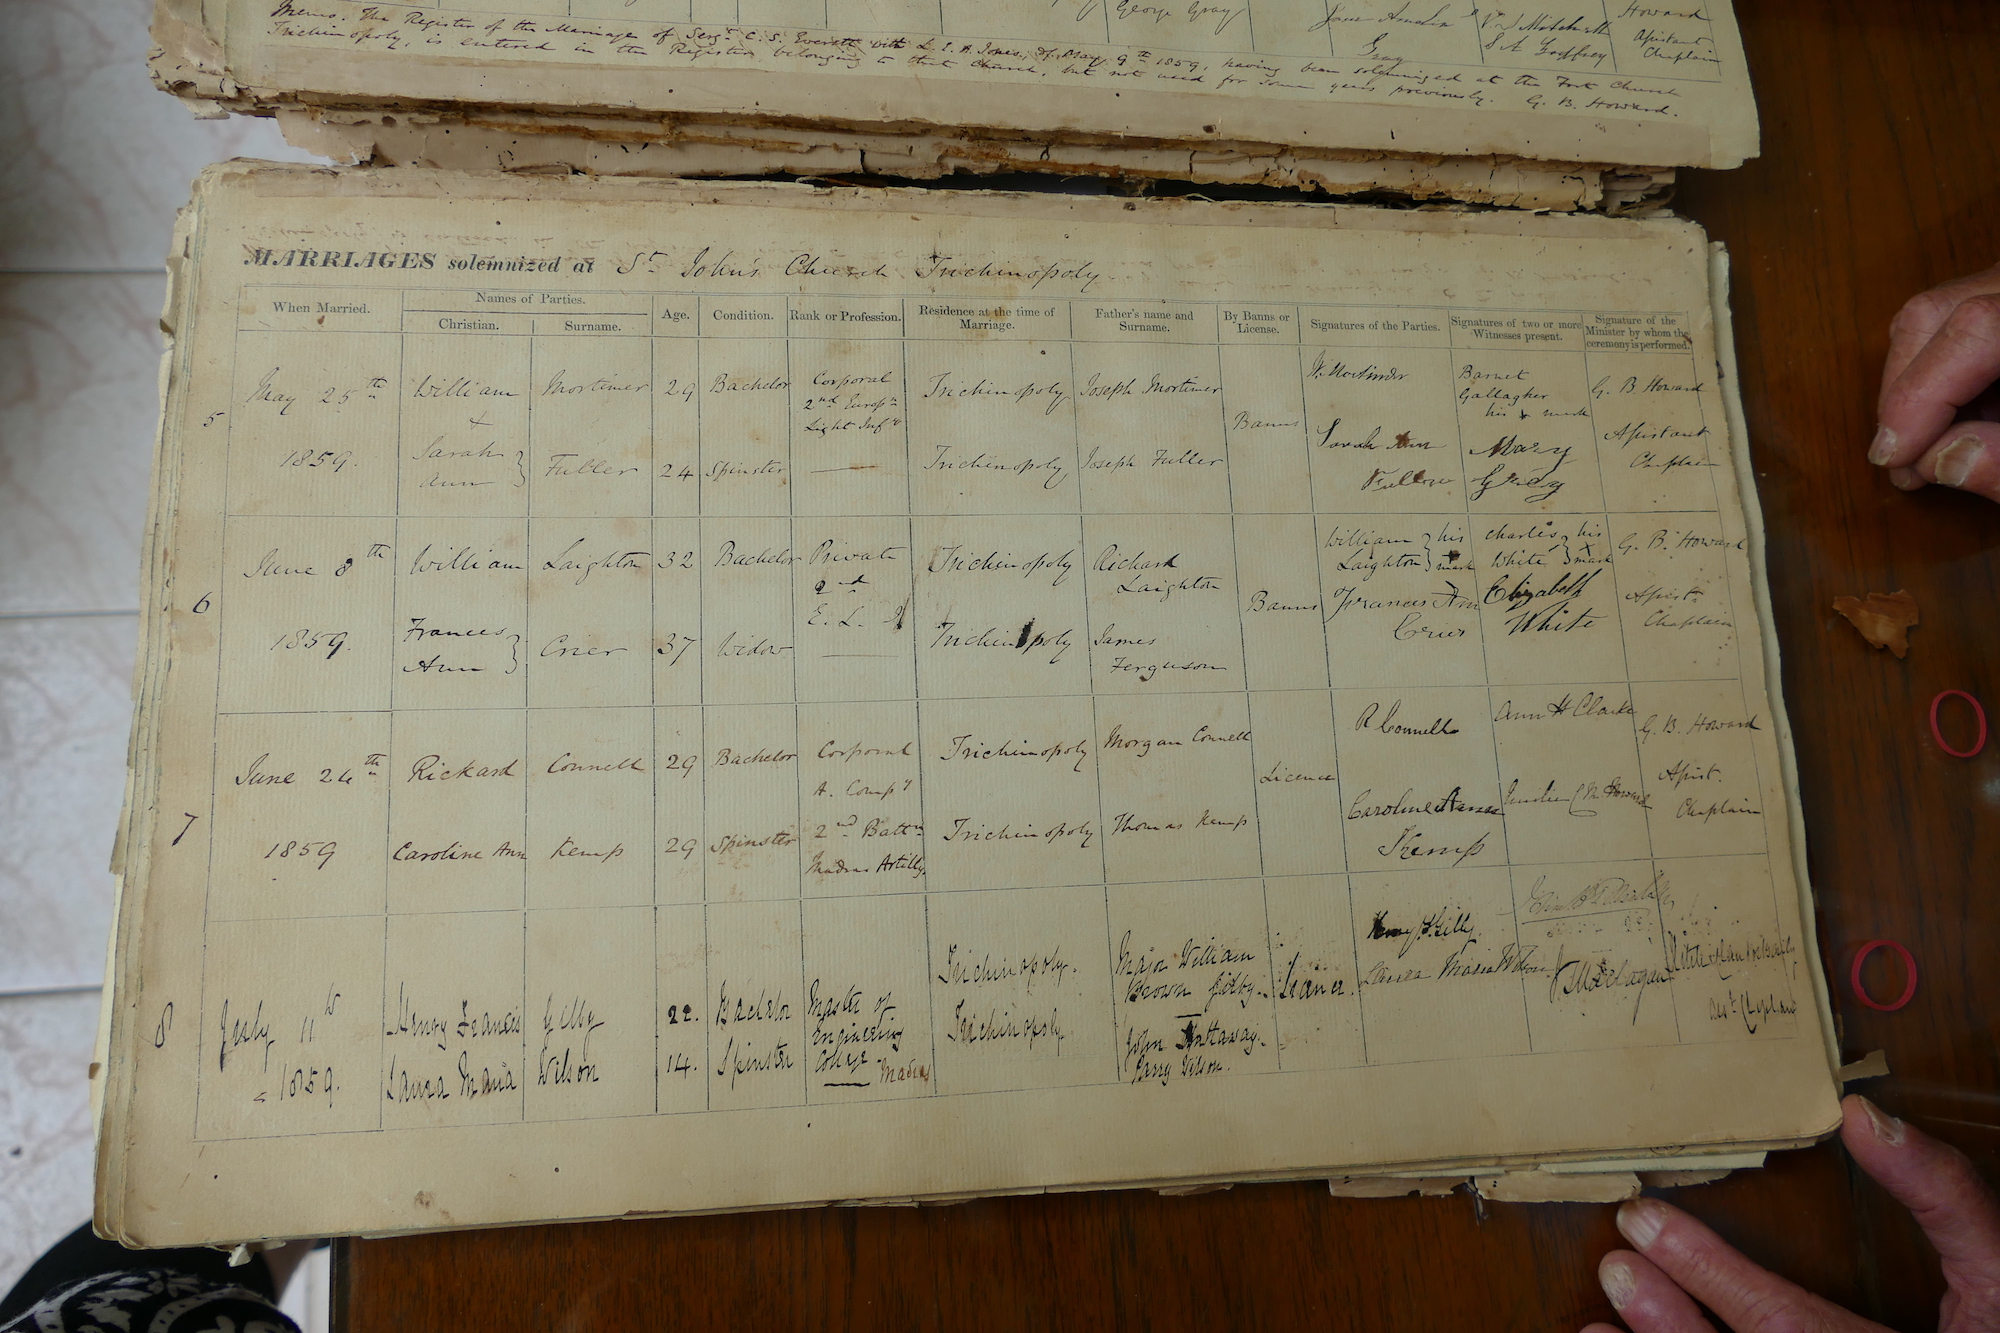 George Gray
Jane Amelia
Gray
S A Godfrey
Howard
Assistant
Chaplain
Memo. The Register of the Marriage of Sergt. C. S. Everett with L. E. A. Jones, of May 9th 1859, having been solemnized at the Fort Church
Trichinopoly, is entered in the Register belonging to that Church, but not used for some years previously. G. B. Howard.
MARRIAGES solemnized at St. John's Church Trichinopoly
When Married. Names of Parties. Age. Condition. Rank or Profession. Residence at the time of Marriage. Father's name and Surname. By Banns or License. Signatures of the Parties. Signatures of two or more Witnesses present. Signature of the Minister by whom the ceremony is performed.
Christian. Surname.
5 May 25th William Mortimer 29 Bachelor Corporal 2nd Europn Light Infy Trichinopoly Joseph Mortimer Banns W. Mortimer Barnet Gallagher his x mark G. B. Howard
+
1859. Sarah Ann } Fuller 24 Spinster — Trichinopoly Joseph Fuller Sarah Ann Fuller Mary Assistant Chaplain
6 June 8th William Laighton 32 Bachelor Private 2nd E. L. I Trichinopoly Richard Laighton Banns William Laighton } his x mark Charles White } his x mark G. B. Howard
1859. Frances Ann } Crier 37 Widow — Trichinopoly James Ferguson Frances Ann Crier Elizabeth White Assist. Chaplain
7 June 24th Rickard Connell 29 Bachelor Corporal A. Compy Trichinopoly Morgan Connell Licence R Connell Ann H Clarke G. B. Howard
1859 Caroline Ann Kemp 29 Spinster 2nd Battn Madras Artilly. Trichinopoly Thomas Kemp Caroline Kemp Howard Assist. Chaplain
8 July 11th Henry Francis Gilby 22. Bachelor Master of Engineering College Madras Trichinopoly. Major William Brown Gilby. Henry F. Gilby.
" 1859. Laura Maria Wilson 14. Spinster — Trichinopoly John Hattaway Parry Wilson. Laura Maria Wilson